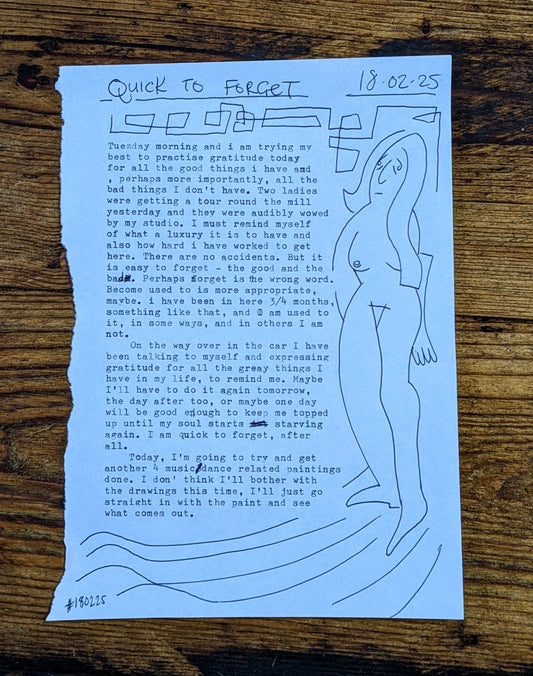 QUICK TO FORGET
18.02.25
Tuezday morning and i am trying my
best to practise gratitude today
for all the good things i have amd
, perhaps more importantly, all the
bad things I don't have. Two ladies
were getting a tour round the mill
yesterday and they were audibly wowed
by my studio. I must remind myself
of what a luxury it is to have and
also how hard i have worked to get
here. There are no accidents. But it
is easy to forget - the good and the
bad. Perhaps forget is the wrong word.
Become used to is more appropriate,
maybe. i have been in here 3/4 months,
something like that, and I am used to
it, in some ways, and in others I am
not.
On the way over in the car I have
been talking to myself and expressing
gratitude for all the greay things I
have in my life, to remind me. Maybe
I'll have to do it again tomorrow,
the day after too, or maybe one day
will be good enough to keep me topped
up until my soul starts starving
again. I am quick to forget, after
all.
Today, I'm going to try and get
another 4 music/dance related paintings
done. I don' think I'll bother with
the drawings this time, I'll just go
straight in with the paint and see
what comes out.
#180225